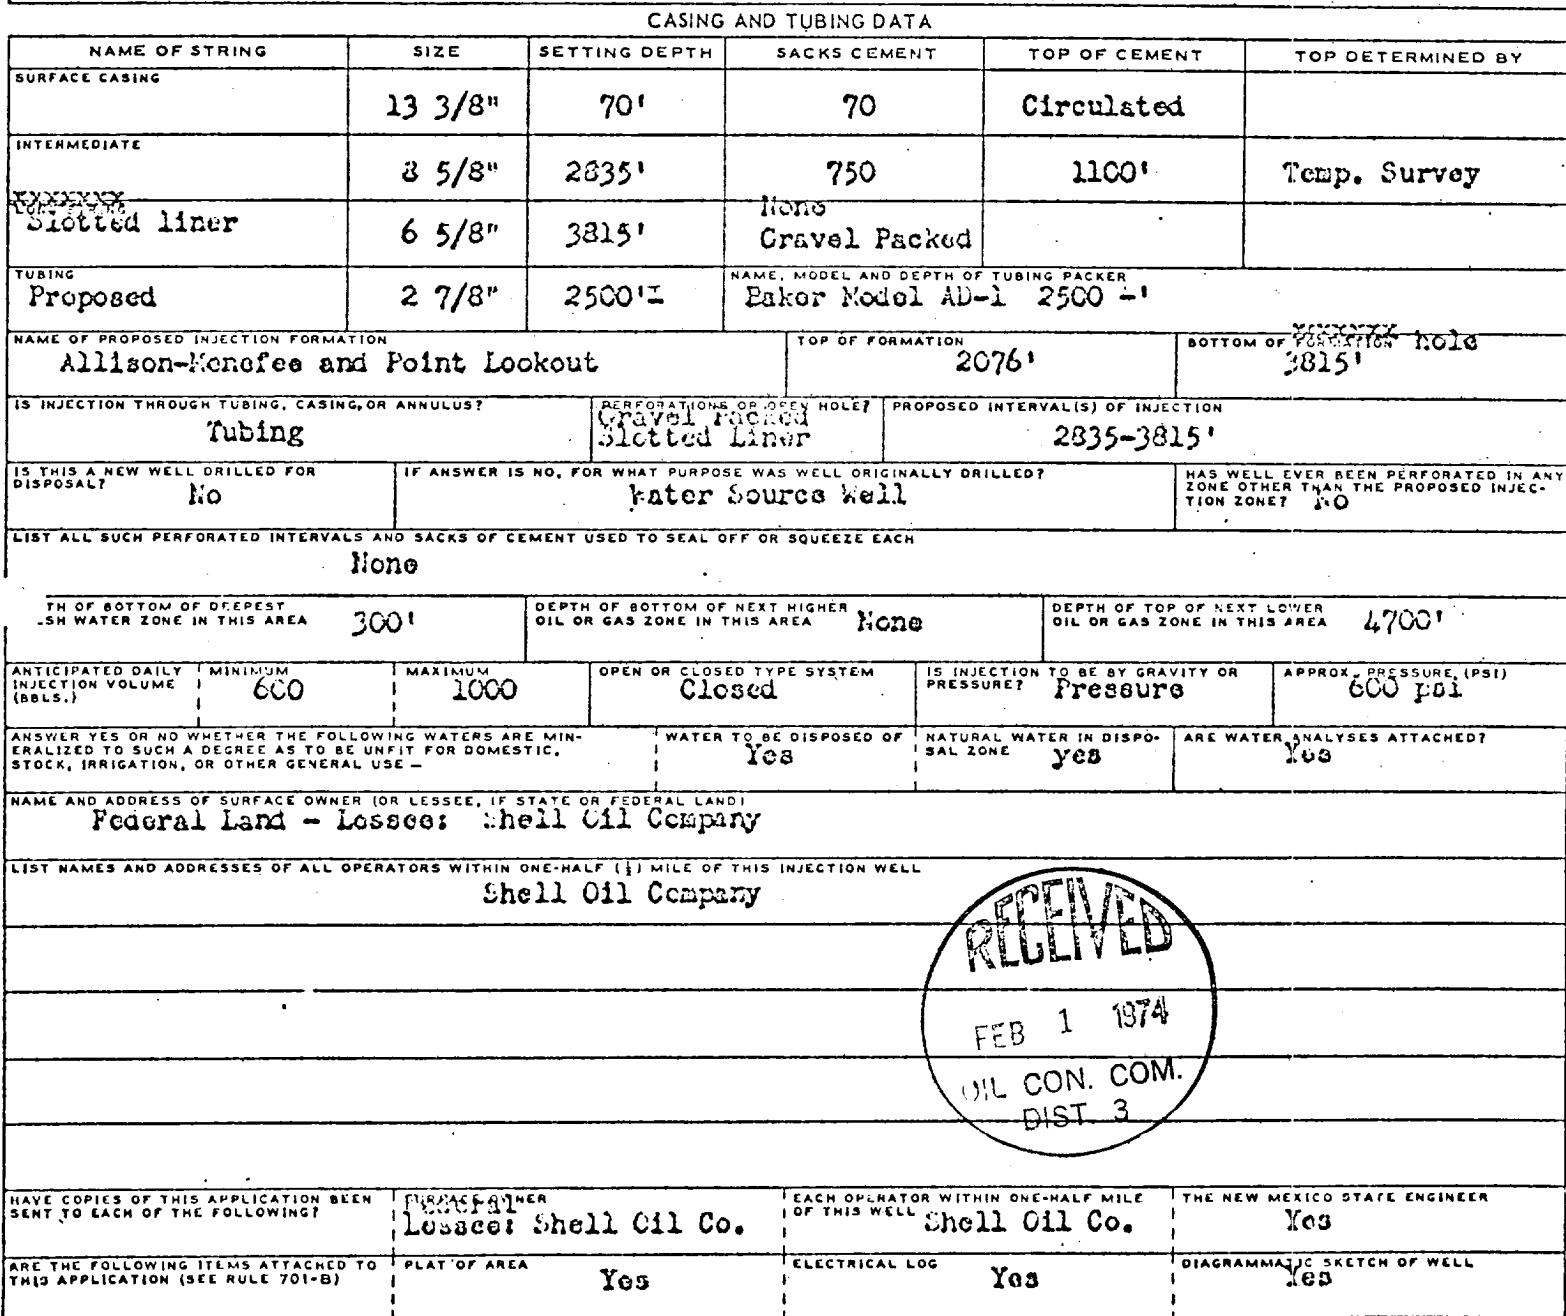 CASING AND TUBING DATA
NAME OF STRING SIZE SETTING DEPTH SACKS CEMENT TOP OF CEMENT TOP DETERMINED BY
SURFACE CASING
13 3/8" 70' 70 Circulated
INTERMEDIATE
8 5/8" 2835' 750 1100' Temp. Survey
XXXXXXX
Slotted liner 6 5/8" 3815' None
Gravel Packed
TUBING NAME, MODEL AND DEPTH OF TUBING PACKER
Proposed 2 7/8" 2500'± Baker Model AD-1 2500 -'
NAME OF PROPOSED INJECTION FORMATION TOP OF FORMATION BOTTOM OF FORMATION hole
Allison-Menefee and Point Lookout 2076' 3815'
IS INJECTION THROUGH TUBING, CASING, OR ANNULUS? PERFORATIONS OR OPEN HOLE? PROPOSED INTERVAL(S) OF INJECTION
Tubing Gravel Packed
Slotted Liner 2835-3815'
IS THIS A NEW WELL DRILLED FOR
DISPOSAL? No
IF ANSWER IS NO, FOR WHAT PURPOSE WAS WELL ORIGINALLY DRILLED?
Water Source Well
HAS WELL EVER BEEN PERFORATED IN ANY
ZONE OTHER THAN THE PROPOSED INJEC-
TION ZONE? NO
LIST ALL SUCH PERFORATED INTERVALS AND SACKS OF CEMENT USED TO SEAL OFF OR SQUEEZE EACH
None
TH OF BOTTOM OF DEEPEST
SH WATER ZONE IN THIS AREA 300'
DEPTH OF BOTTOM OF NEXT HIGHER
OIL OR GAS ZONE IN THIS AREA None
DEPTH OF TOP OF NEXT LOWER
OIL OR GAS ZONE IN THIS AREA 4700'
ANTICIPATED DAILY
INJECTION VOLUME
(BBLS.)
MINIMUM
600
MAXIMUM
1000
OPEN OR CLOSED TYPE SYSTEM
Closed
IS INJECTION TO BE BY GRAVITY OR
PRESSURE? Pressure
APPROX. PRESSURE (PSI)
600 psi
ANSWER YES OR NO WHETHER THE FOLLOWING WATERS ARE MIN-
ERALIZED TO SUCH A DEGREE AS TO BE UNFIT FOR DOMESTIC,
STOCK, IRRIGATION, OR OTHER GENERAL USE —
WATER TO BE DISPOSED OF
Yes
NATURAL WATER IN DISPO-
SAL ZONE yes
ARE WATER ANALYSES ATTACHED?
Yes
NAME AND ADDRESS OF SURFACE OWNER (OR LESSEE, IF STATE OR FEDERAL LAND)
Federal Land - Lessee: Shell Oil Company
LIST NAMES AND ADDRESSES OF ALL OPERATORS WITHIN ONE-HALF (½) MILE OF THIS INJECTION WELL
Shell Oil Company
RECEIVED
FEB 1 1974
OIL CON. COM.
DIST. 3
HAVE COPIES OF THIS APPLICATION BEEN
SENT TO EACH OF THE FOLLOWING?
SURFACE OWNER
Federal
Lessee: Shell Oil Co.
EACH OPERATOR WITHIN ONE-HALF MILE
OF THIS WELL Shell Oil Co.
THE NEW MEXICO STATE ENGINEER
Yes
ARE THE FOLLOWING ITEMS ATTACHED TO
THIS APPLICATION (SEE RULE 701-B)
PLAT OF AREA
Yes
ELECTRICAL LOG
Yes
DIAGRAMMATIC SKETCH OF WELL
Yes